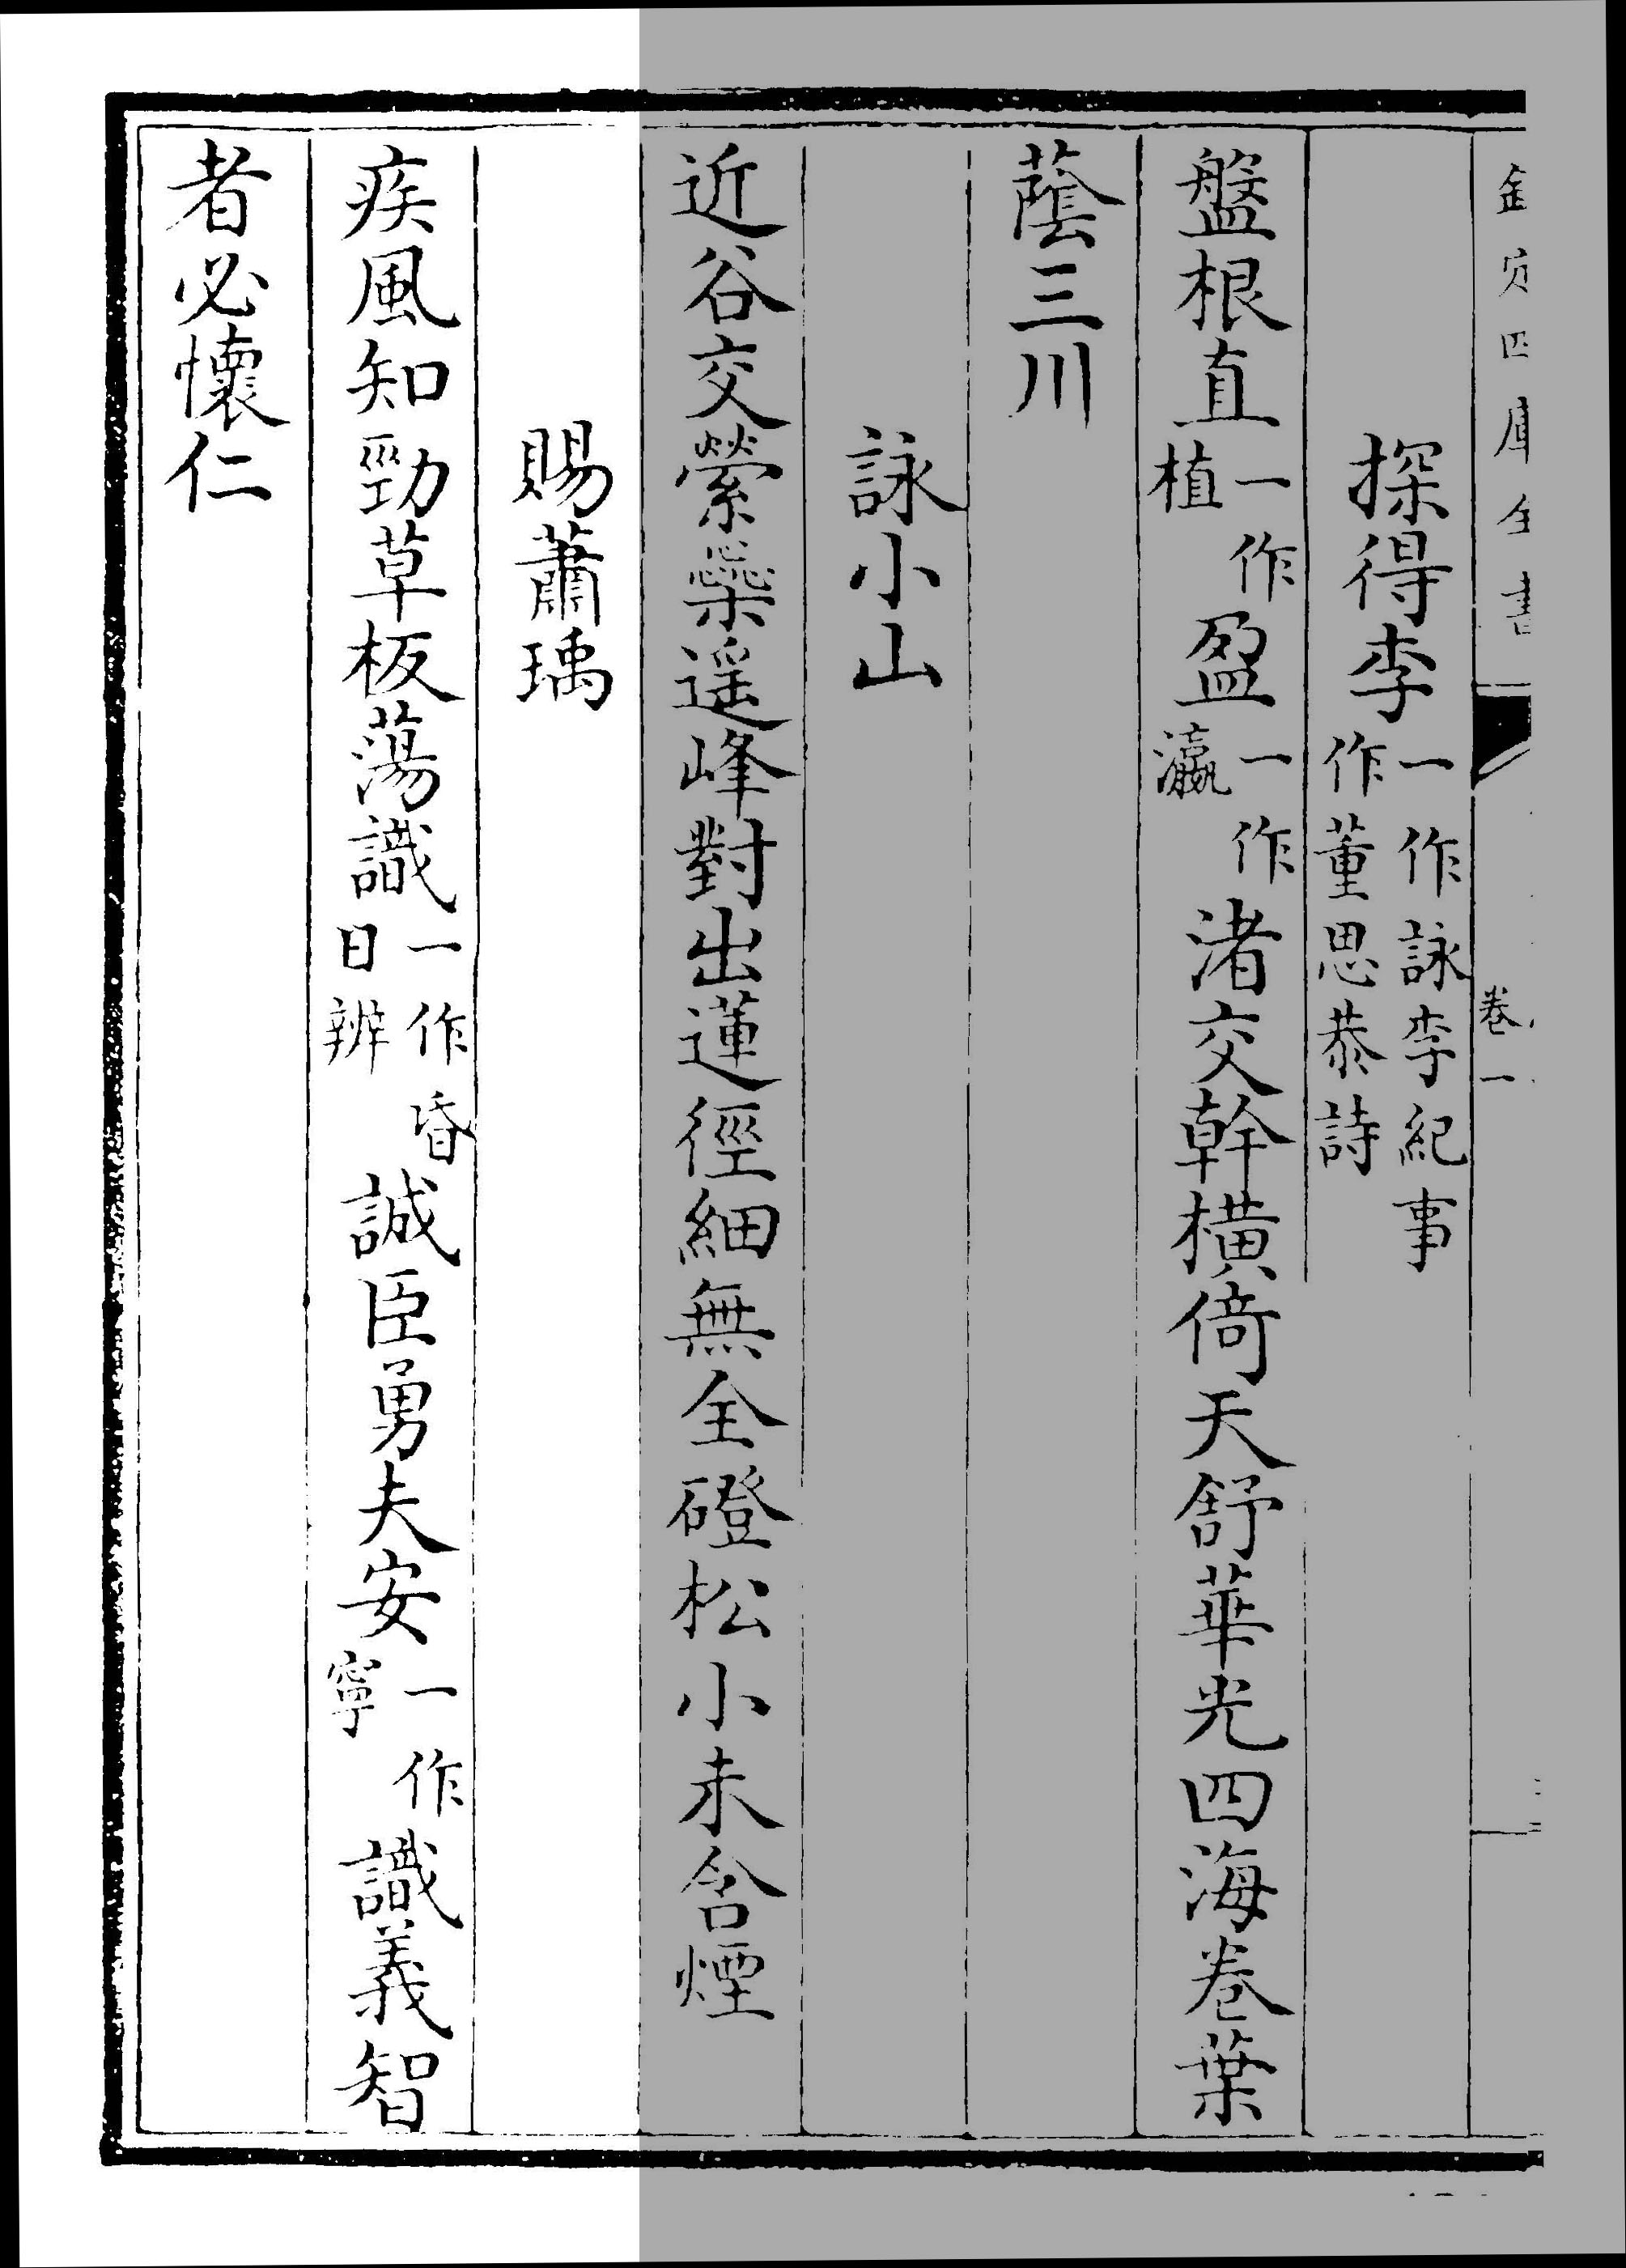 欽定四庫全書
卷一
探得李一作詠李紀事作董思恭詩
盤根直一作植盈一作瀛渚交幹橫倚天舒華光四海卷葉
蔭三川
詠小山
近谷交縈蘂遥峰對出蓮徑細無全磴松小未含煙
賜蕭瑀
疾風知勁草板蕩識一作昏日辨誠臣勇夫安一作寧識義智
者必懷仁